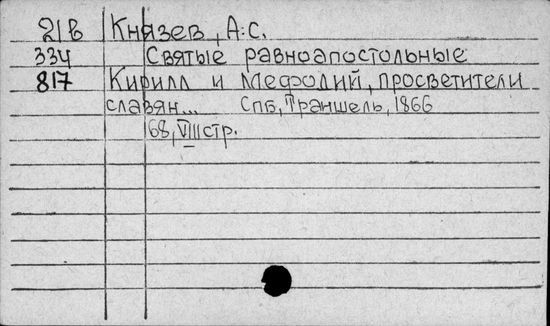 21в Князев, А.С.
334 Святые равноапостольные
817 Кирилл и Мефодий, просветители
славян... Спб, Траншель, 1866
68, VIII стр.